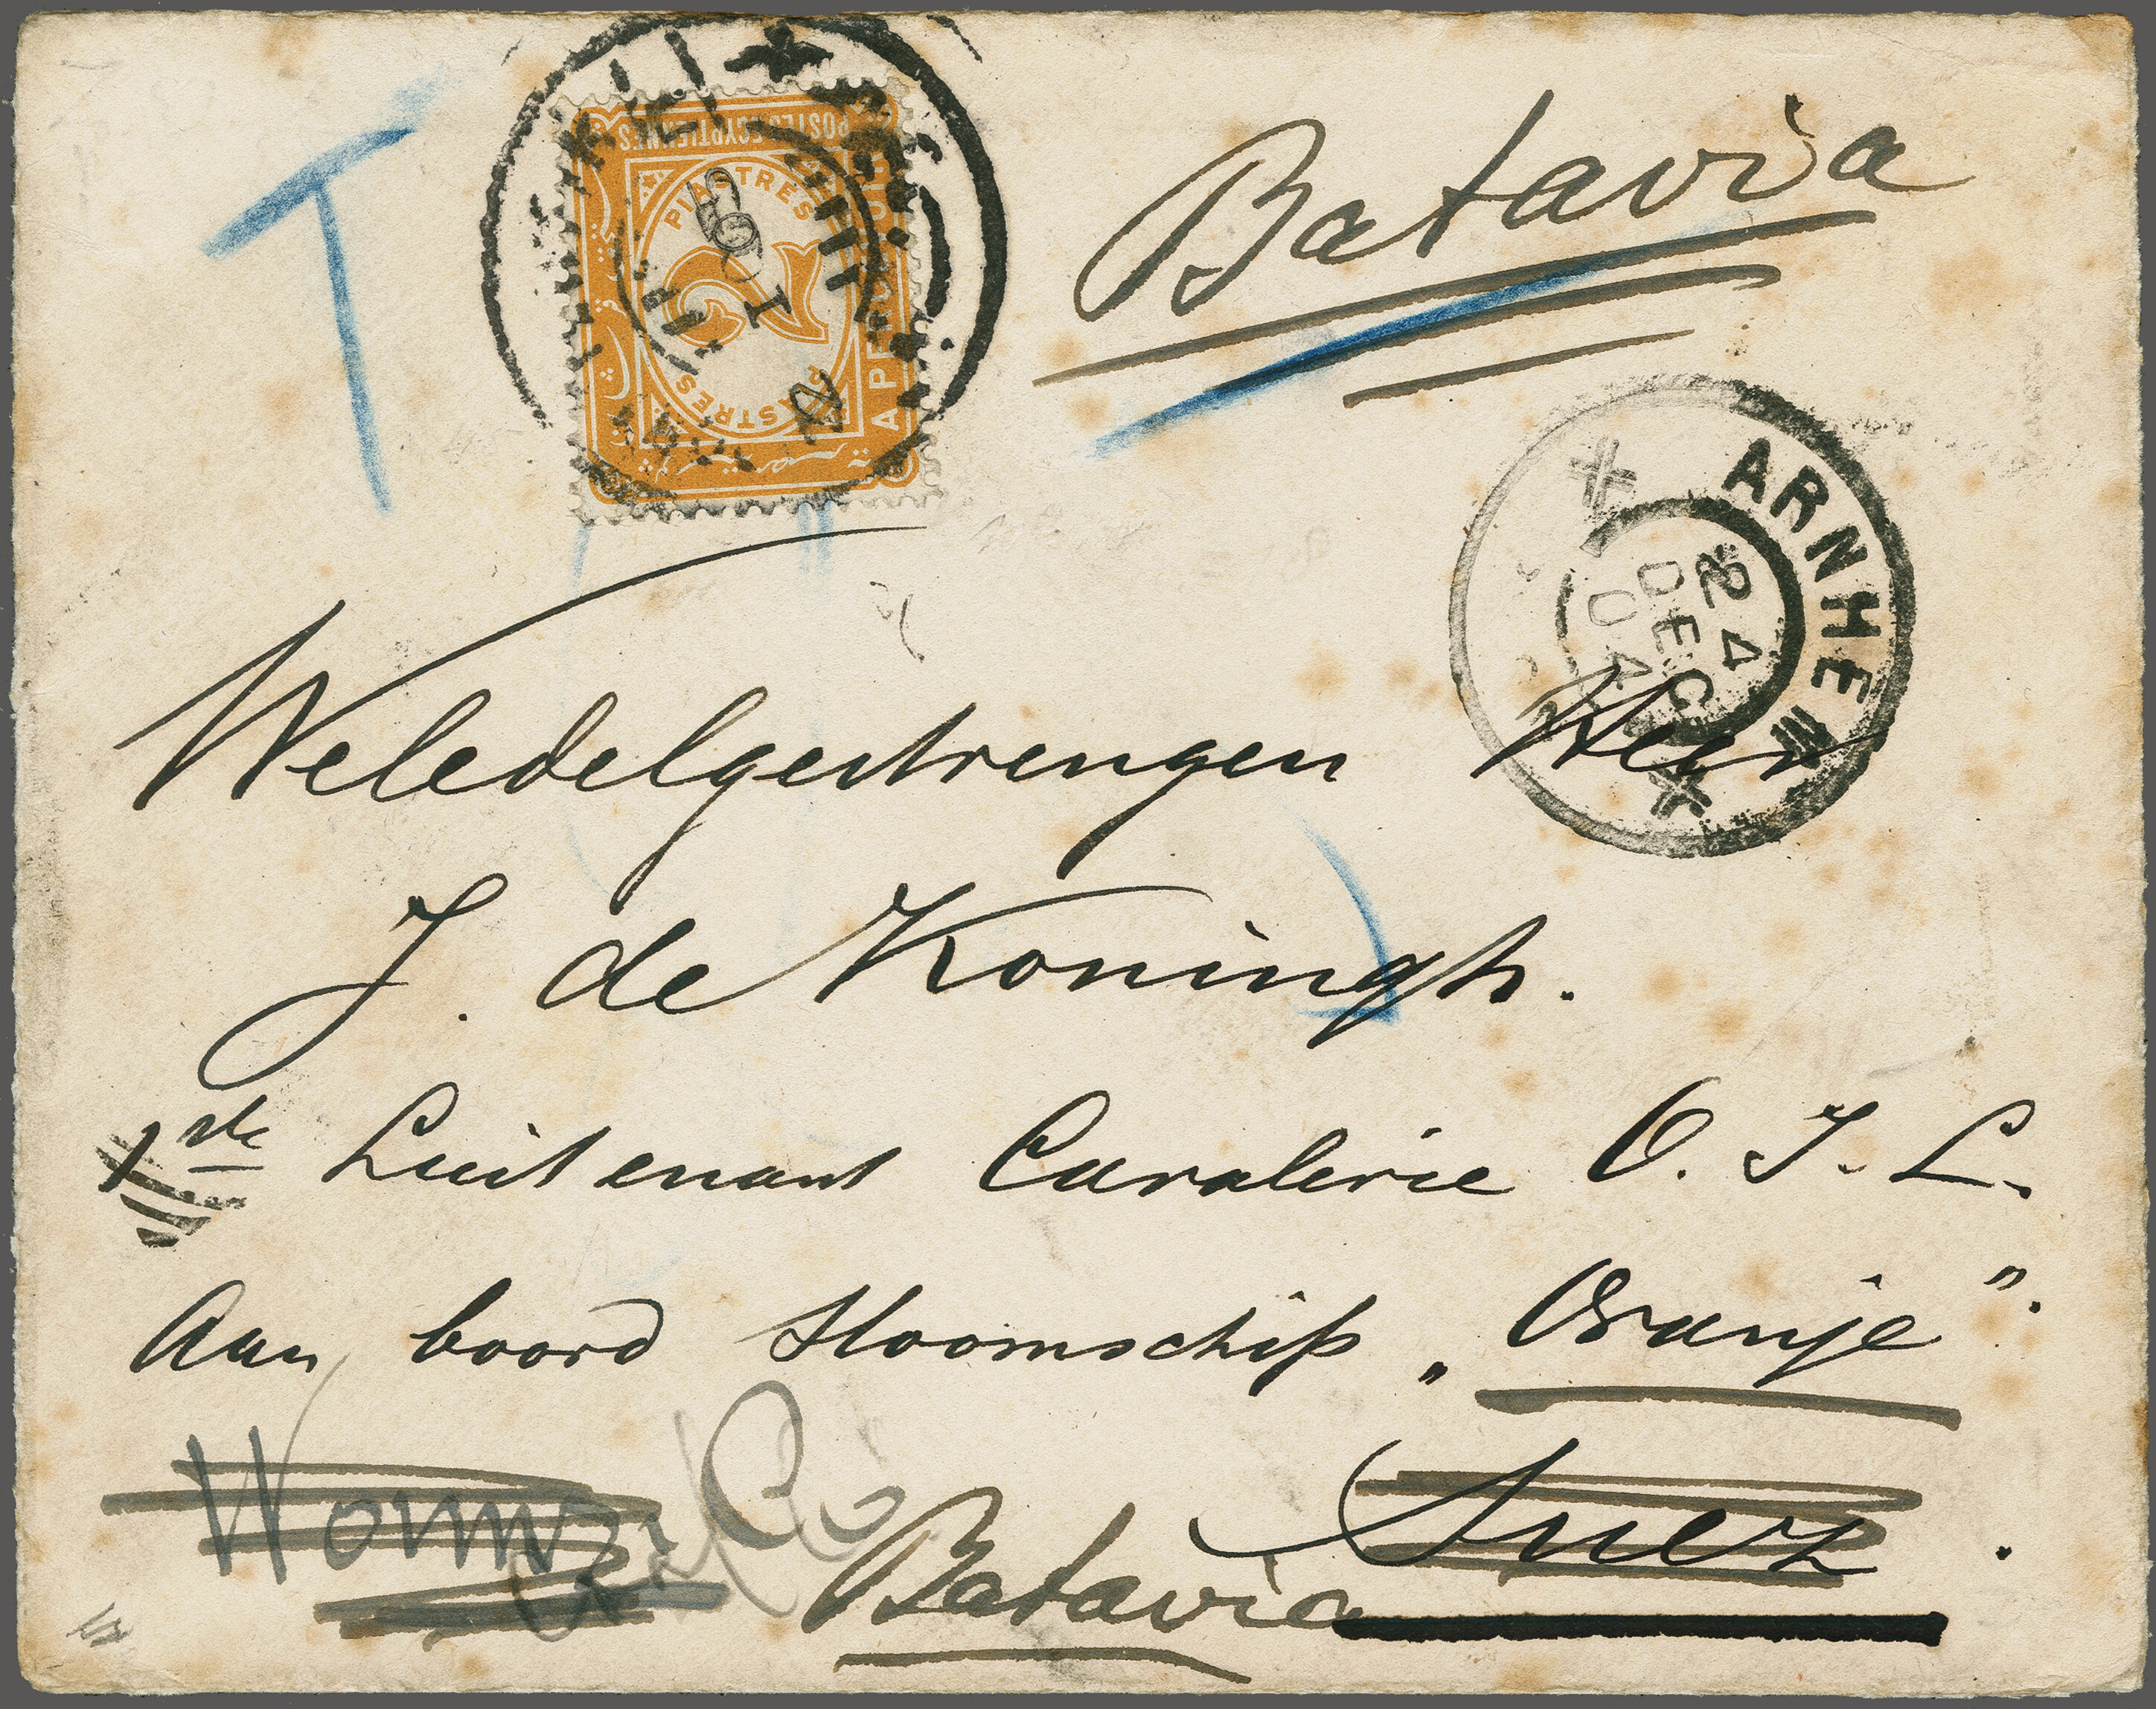 T
POSTES EGYPTIENNES
PIASTRES
2
PIASTRES
A PERCEVOIR
Batavia
ARNHEM
24
DEC
04
Weledelgestrengen Heer
J. de Koningh.
1ste Luitenant Cavalerie O. I. L.
Aan boord Stoomschip „Oranje".
Suez.
Batavia